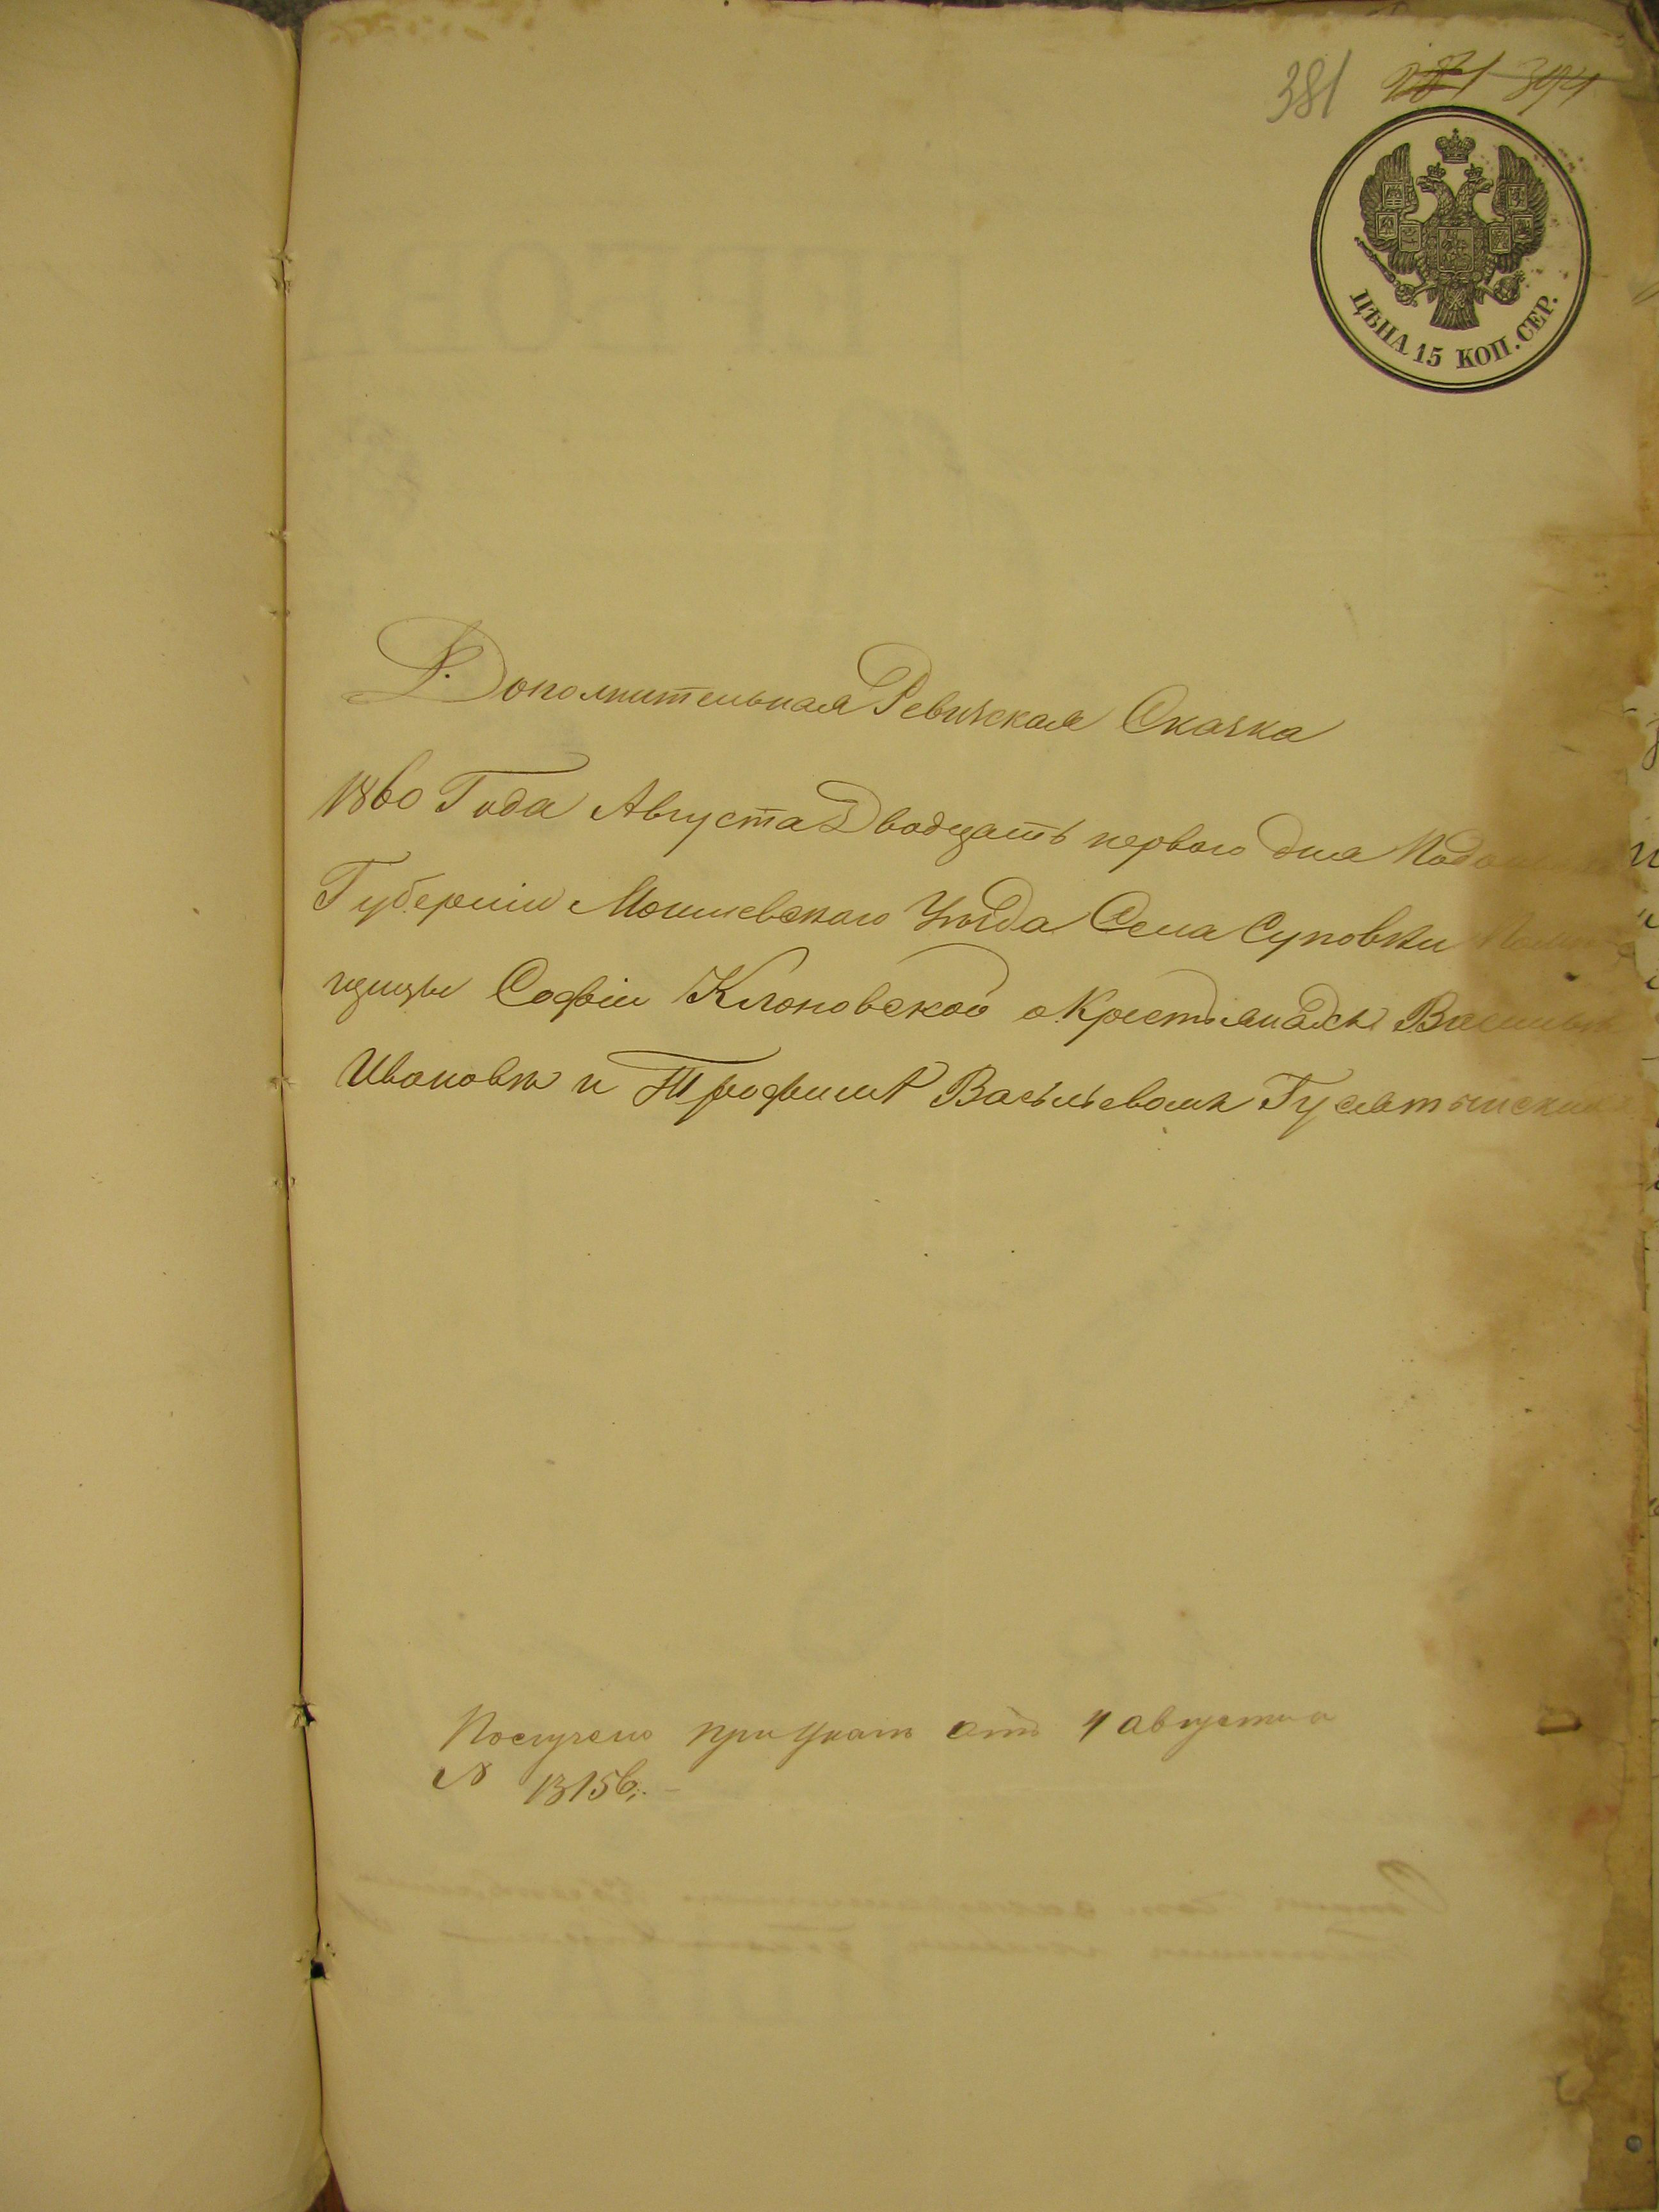 381 281 394
ЦѢНА 15 КОП. СЕР.
Дополнительная Ревизская Сказка
1860 Года Августа Двадцать первого дня
Губерніи Могилевского Уѣзда Села Суповки
щицы Софіи Клоновской о Крестьянахъ
Ивановѣ и Трофимѣ Васильевомъ Гусятинских
Получено при Указѣ отъ 4 августа
№ 13156.